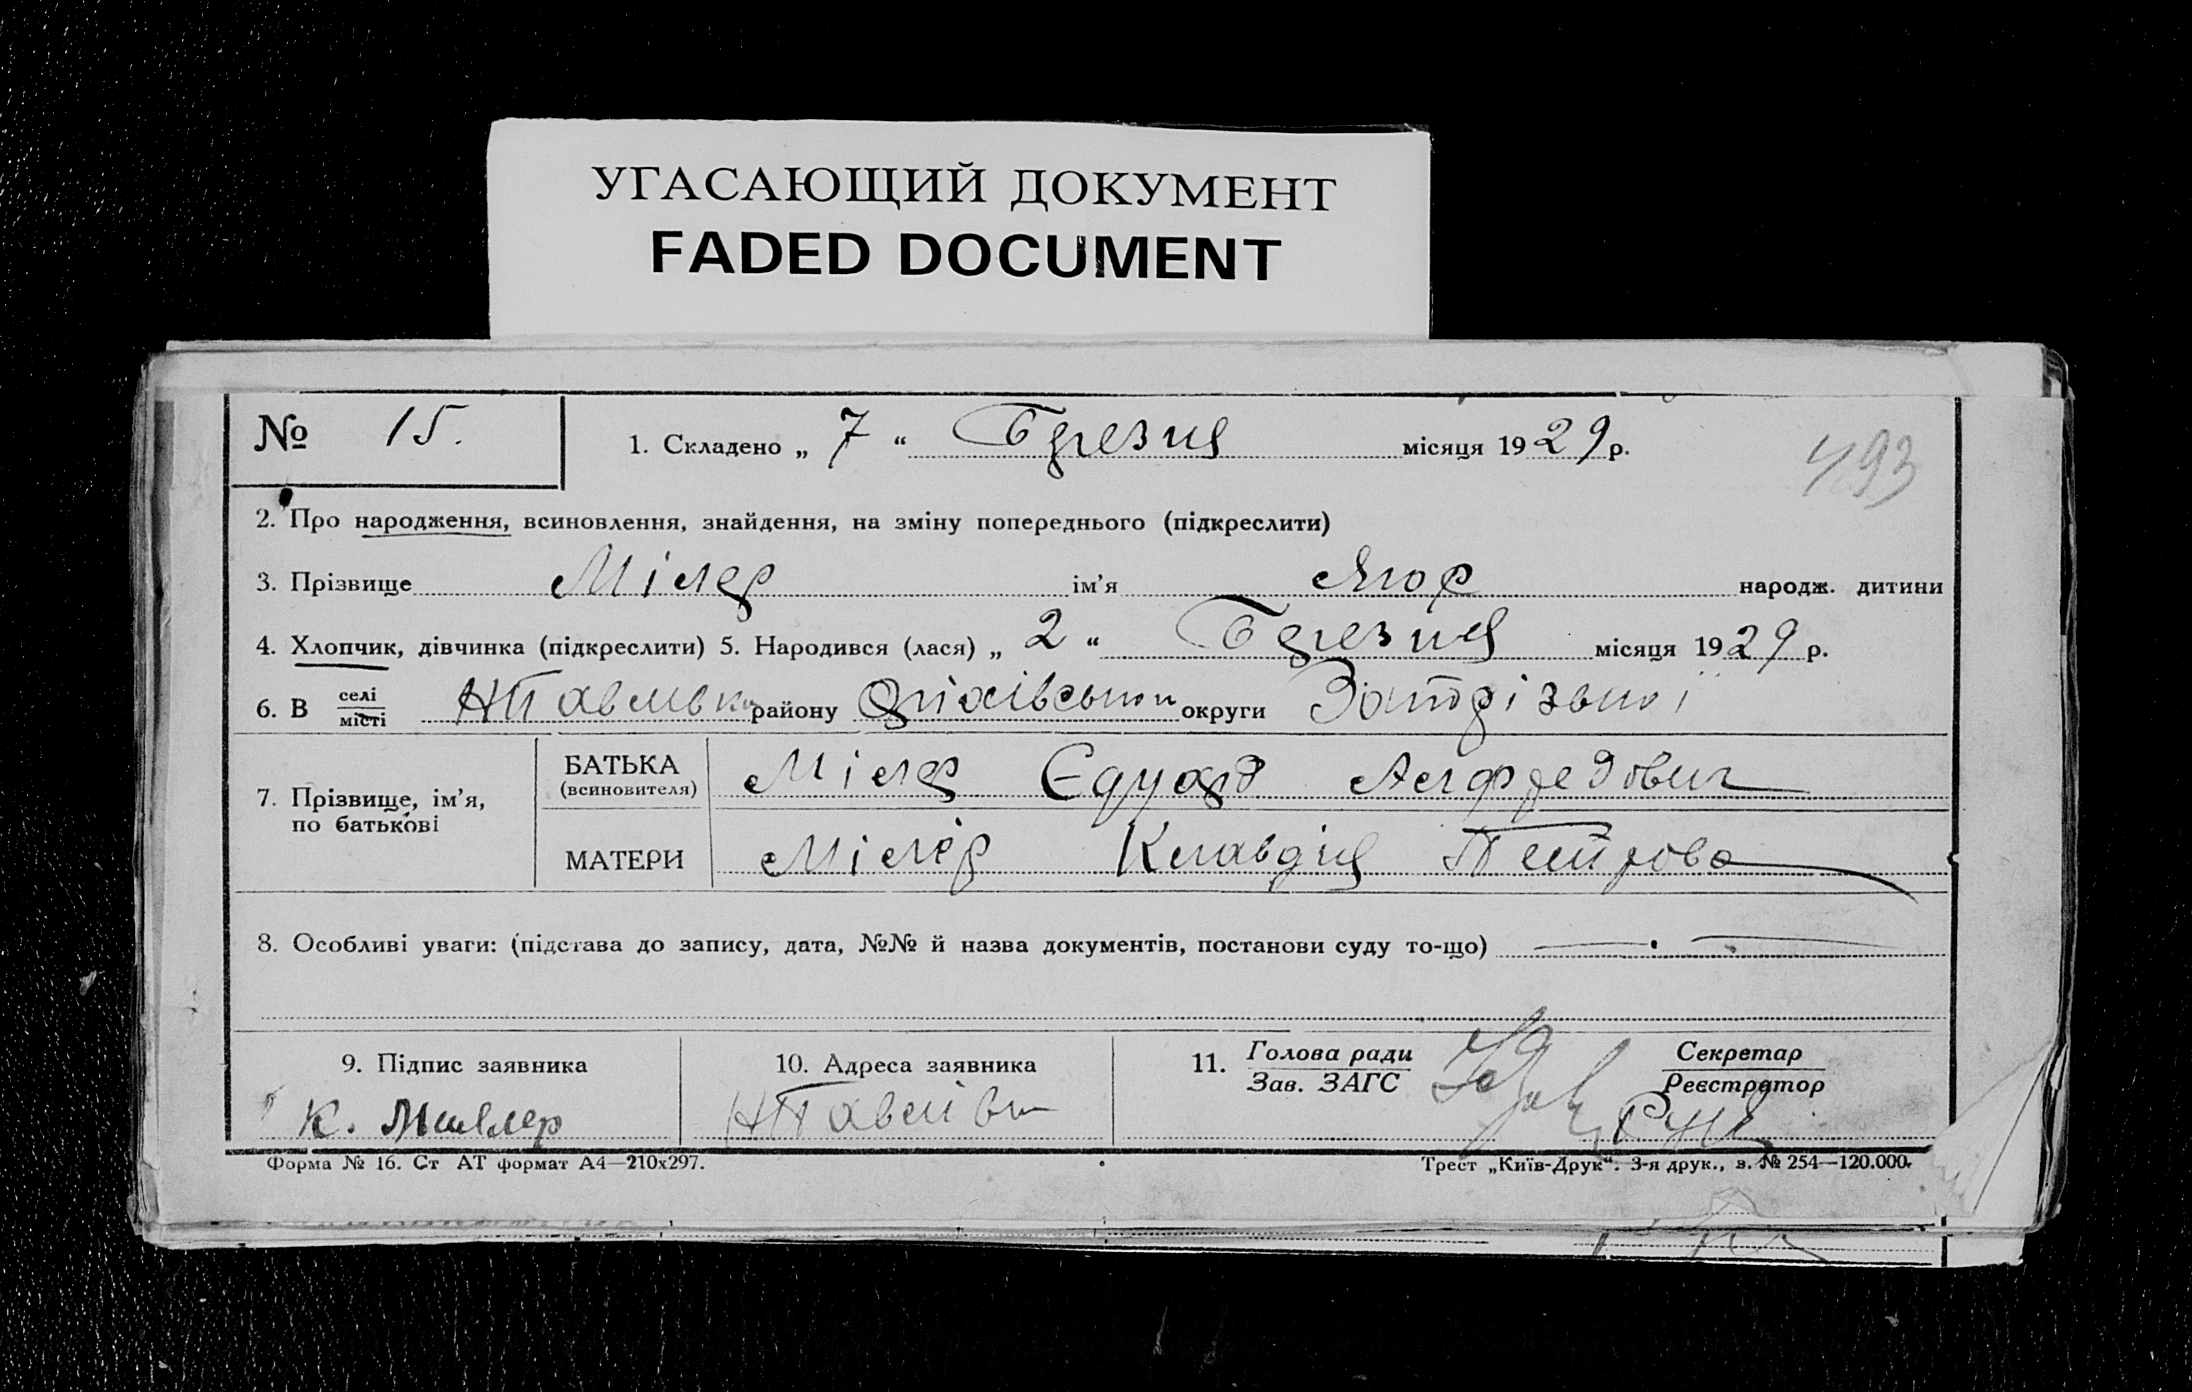 УГАСАЮЩИЙ ДОКУМЕНТ
FADED DOCUMENT
№ 15.
1. Складено „ 7 “ Березня місяця 1929 р.
493
2. Про народження, всиновлення, знайдення, на зміну попереднього (підкреслити)
3. Прізвище Мілер ім’я народж. дитини
4. Хлопчик, дівчинка (підкреслити) 5. Народився (лася) „ 2 “ Березня місяця 1929 р.
6. В селі/місті НПавлівка району Оріхівського округи Запорізької
7. Прізвище, ім’я, по батькові
БАТЬКА (всиновителя) Мілер Єдуард Алфредович
МАТЕРИ Мілер Клавдія Петрова
8. Особливі уваги: (підстава до запису, дата, №№ й назва документів, постанови суду то-що)
9. Підпис заявника
10. Адреса заявника
11. Голова ради / Зав. ЗАГС
Секретар / Реєстратор
К. Миллер
НПавлівк
Форма № 16. Ст АТ формат А4—210х297.
Трест „Київ-Друк“. 3-я друк., в. № 254—120.000.